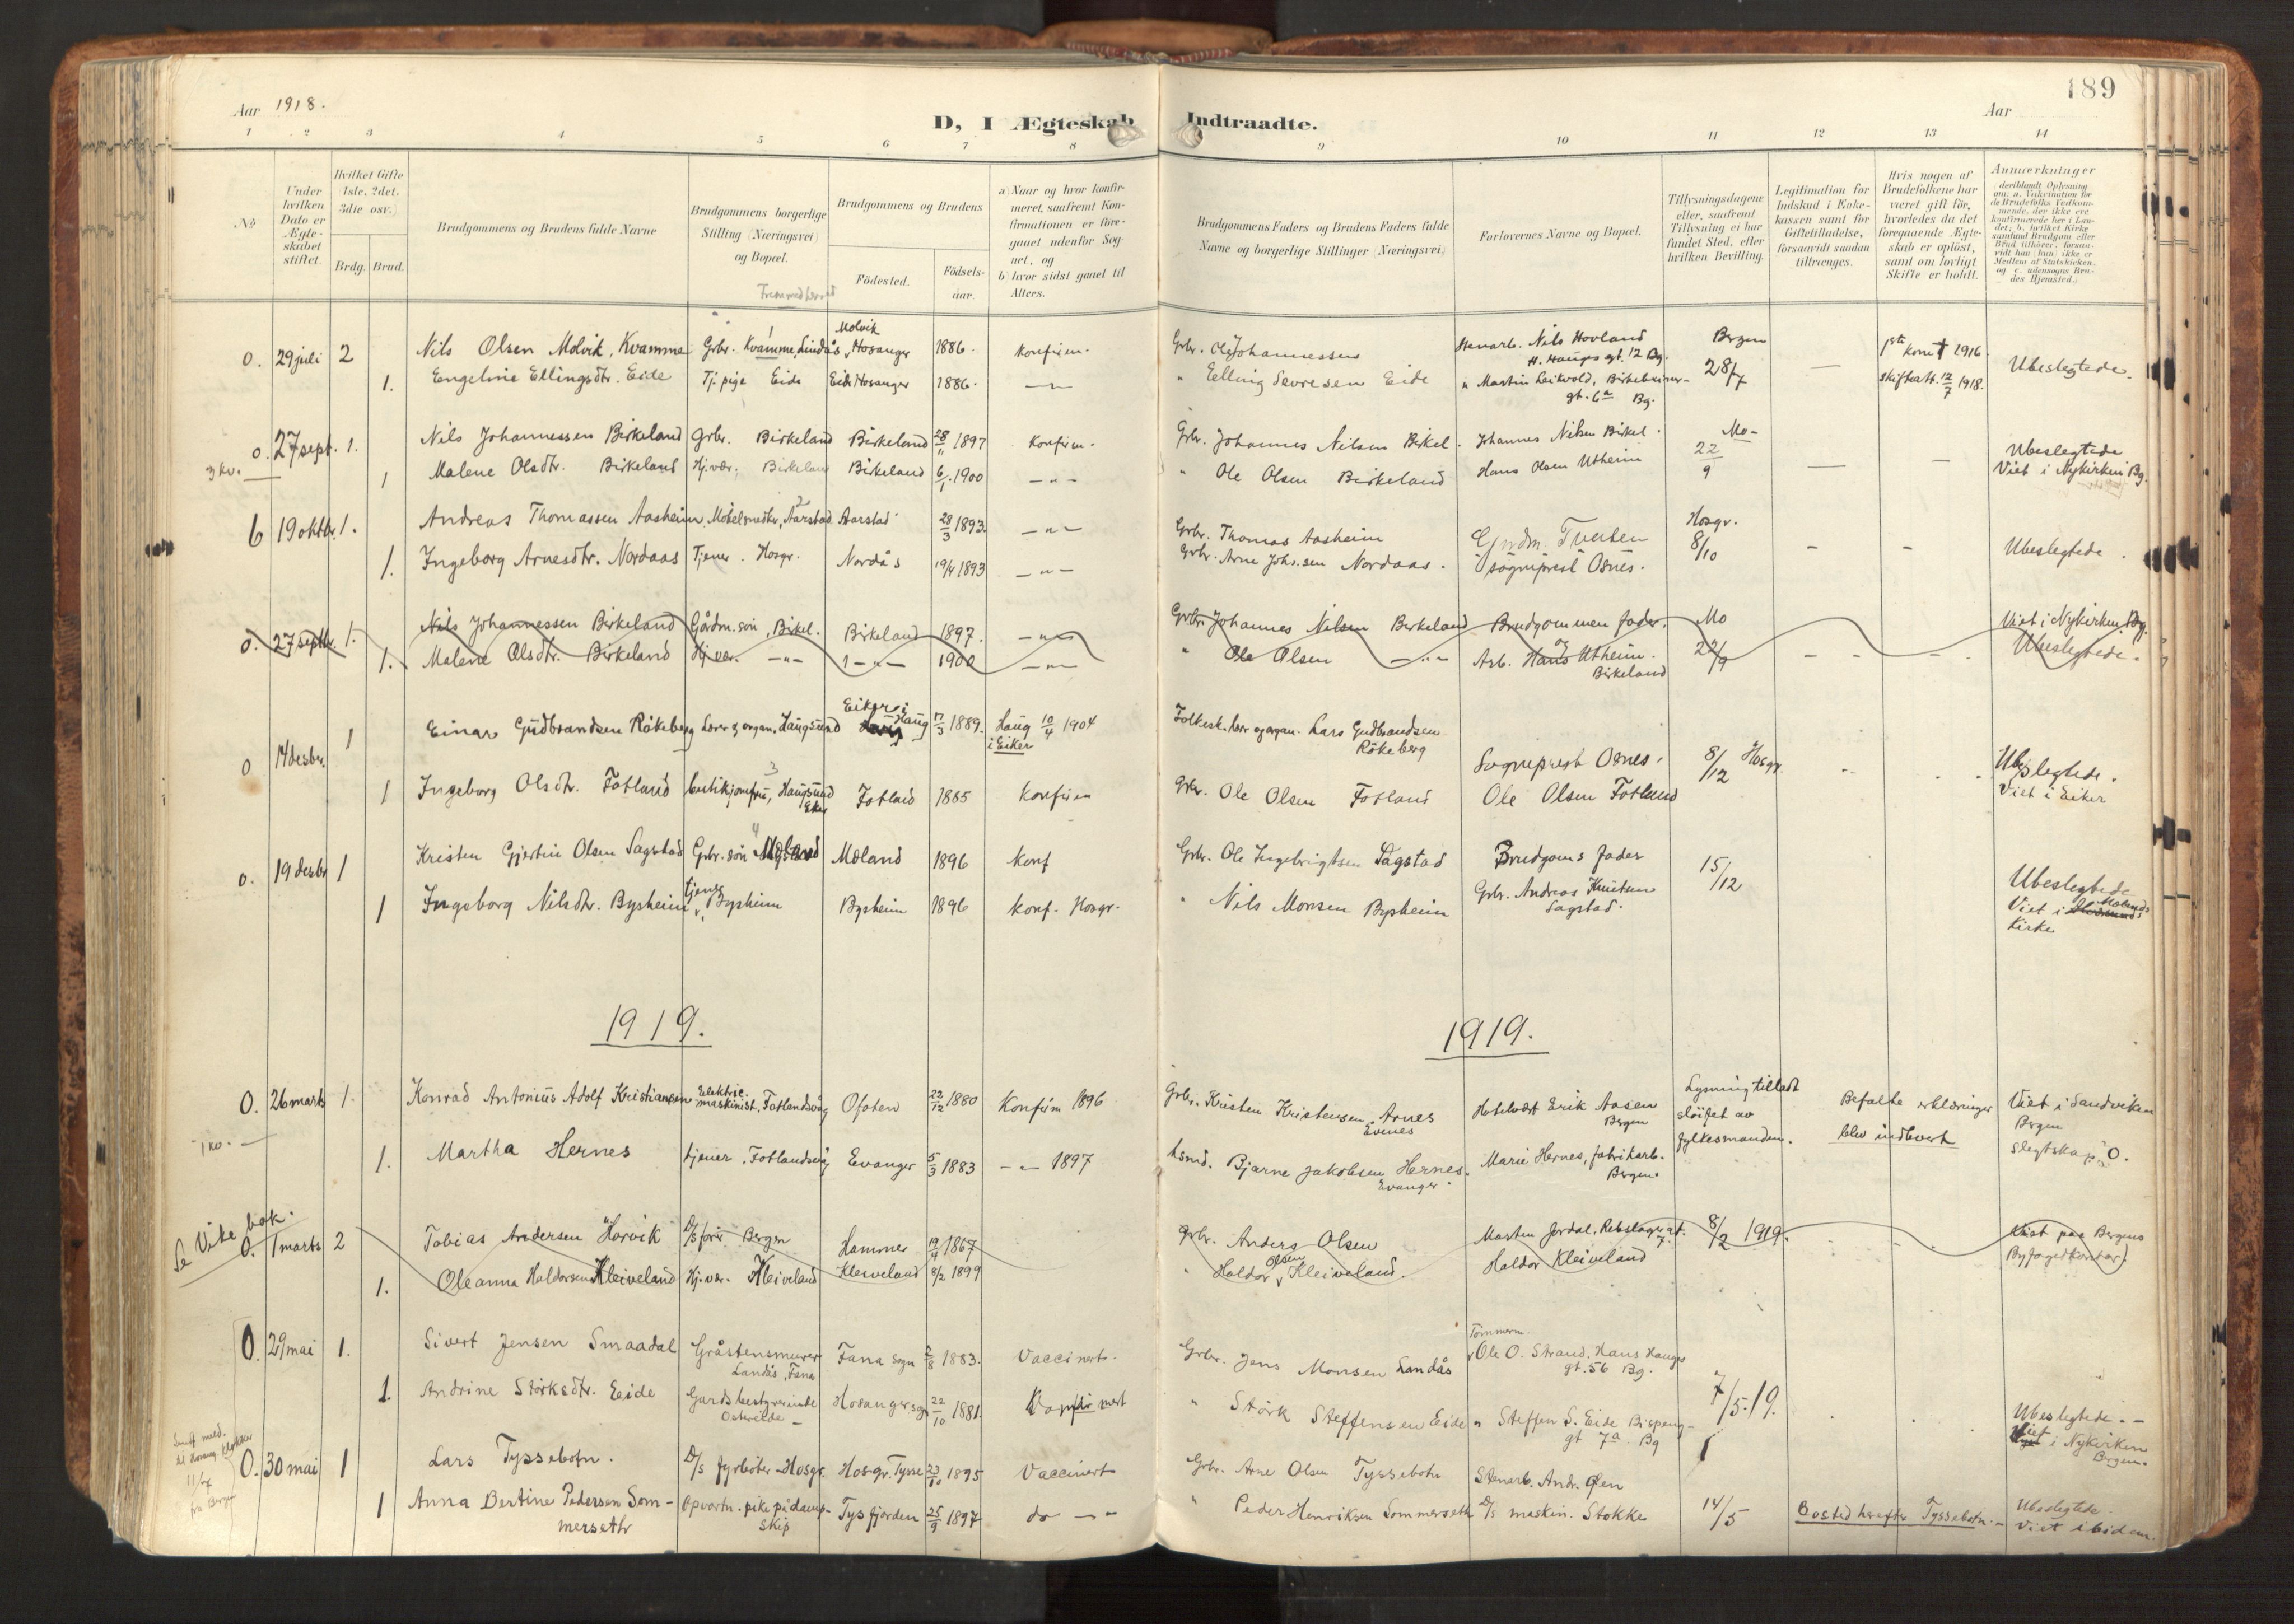 189
Aar 1918.
D, I Ægteskab Indtraadte.
Aar
1 2 3 4 5 6 7 8 9 10 11 12 13 14
No
Under hvilken Dato er Ægteskabet stiftet.
Hvilket Gifte 1ste, 2det, 3die osv.)
Brdg. Brud.
Brudgommens og Brudens fulde Navne
Brudgommens borgerlige Stilling (Næringsvei) og Bopæl.
Brudgommens og Brudens
Födested.
Födselsaar.
a) Naar og hvor konfirmeret, saafremt Konfirmationen er foregaaet udenfor Sognet, og
b) hvor sidst gaaet til Alters.
Brudgommens Faders og Brudens Faders fulde Navne og borgerlige Stillinger (Næringsvei)
Forlovernes Navne og Bopæl.
Tillysningsdagene eller, saafremt Tillysning ei har fundet Sted, efter hvilken Bevilling.
Legitimation for Indskud i Enkekassen samt for Giftetilladelse, forsaavidt saadan tiltrænges.
Hvis nogen af Brudefolkene har været gift för, hvorledes da det foregaaende Ægteskab er oplöst, samt om lovligt Skifte er holdt.
Anmærkninger
(deriblandt Oplysning om: a. Vaksination for de Brudefolks Vedkommende, der ikke ere konfirmerede her i Landet; b. hvilket Kirkesamfund Brudgom eller Brud tilhörer, forsaavidt han (hun) ikke er Medlem af Statskirken, og c. udensogns Brudes Hjemsted.)
0. 29 juli 2 Nils Olsen Molvik, Kvamme Grbr. Kvamme, Lindås Molvik Hosanger 1886. konfirm. Grbr. Ole Johannessen Stenarb. Nils Hovland H. Hauges gt. 12 Bg. Bergen 28/7 1ste kone † 1916
1. Engeline Ellingsdtr. Eide Tj. pige Eide Eide Hosanger 1886. — " — " Elling Eide " Martin gt. 6a Bg. — skifteatt. 12/7 1918. Ubeslegtede.
0. 27 sept. 1. Nils Johannessen Birkeland Grbr. Birkeland Birkeland 28/11 1897 Konfirm. Grbr. Johannes Nilsen Birkel. Johannes Nilsen Birkel. Mo 22/9
1 Malene Olsdtr. Birkeland Hj.vær. Birkeland Birkeland 6/1 1900 — " — " Ole Olsen Birkeland Hans Olsen Utheim — — Ubeslegtede Viet i Nykirken Bg.
6 19 oktbr. 1. Andreas Thomassen Aasheim, Möbelsnedker, Aarstad Aarstad 28/3 1893. — " — Grbr. Thomas Aasheim Gjrdm. Tveiten Hosgr. 8/10
1. Ingeborg Arnesdtr. Nordaas Tjener. Hosgr. Nordås 19/4 1893 — " — Grbr. Arne Johs.sen Nordaas. sogneprest Osnes. - - Ubeslegtede.
0. 27 septbr. 1. Nils Johannessen Birkeland Gårdm. sön, Birkel. Birkeland 1897. — " — Grbr. Johannes Nilsen Birkeland Brudgommen fader. Mo Viet i Nykirken, Bg.
1. Malene Olsdtr. Birkeland Hj.vær. — " — — " — 1900 — " — " Ole Olsen — " — og Arb. Hans Utheim. Birkeland 22/9 - - - Ubeslegtede.
0 14 desbr. 1 Einar Gudbrandsen Rökeberg Lærer og organ. Haugsund Eiker i Haug 17/3 1889. Haug i Eiker 10/4 1904 Folkesk. lærer og organ. Lars Gudbrandsen Rökeberg Sogneprest Osnes. 8/12 Hosgr.
1 Ingeborg Olsdtr. Fotland butikjomfru, Haugsund Eker Fotland 1885 Konfirm Grbr. Ole Olsen Fotland Ole Olsen Fotland Ubeslegtede. Viet i Eiker
0. 19 desbr 1 Kristen Gjertin Olsen Sagstad Grbr. sön Mæland 1896 Konf Grbr. Ole Ingebrigtsen Sagstad Brudgoms fader 15/12
1 Ingeborg Nilsdtr. Bysheim tjener, Bysheim Bysheim 1896 Konf. Hosgr. " Nils Monsen Bysheim Grbr. Andreas Knutsen Sagstad. Ubeslegtede Viet i Mælands Kirke
1919. 1919.
0. 26 marts 1. Konrad Antonius Adolf Kristiansen Elektric. maskinist, Fotlandsvåg Ofoten 22/12 1880 Konfirm 1896 Grbr. Kristen Kristensen, Evenes Hotelvært Erik Aasen Bergen Lysning tilladt slöifet av fylkesmanden. Befalte erklæringer blev indlevert Viet i Sandviken Bergen
1. Martha Hernes tjener, Fotlandsvåg Evanger 5/3 1883 — " — 1897 Husmd. Bjarne Jakobsen Hernes. Evanger. Marie Hernes, fabrikarb. Bergen. slegtskap: 0.
Se Vike bok.
0. 1 marts 2 Tobias Andersen Horvik D/s förer Bergen Hammer 19/4 1867 Grbr. Anders Olsen Morten Jordal, Rebslagergt. 7. 8/2 1919. Viet paa Bergens Byfogedkontor.
1. Oleanna Haldorsen Kleiveland Hj.vær. Kleiveland Kleiveland 8/2 1899 " Haldor Olsen Kleiveland. Haldor Kleiveland
0. 29 mai 1. Sivert Jensen Smaadal Gråstensmurer Landås, Fana Fana sogn 2/8 1883. Vaccinert. Grbr. Jens Monsen Landås Tömmerm. Ole O. Strand, Hans Hauges gt. 56 Bg.
1. Andrine Störksdtr. Eide Gardsbestyrerinde Ostereide Hosanger sogn 22/10 1881. " Störk Steffensen Eide " Steffen S. Eide Bispeng- gt 7a Bg 7/5.19. Ubeslegtede. — Viet i Nykirken Bergen.
0. 30 mai 1 Lars Tyssebotn. D/s fyrböter - Hosgr. Hosgr. Tysse 23/10 1895 Vaccinert Grbr. Arne Olsen Tyssebotn Stenarb. Andr. Oen
1 Anna Bertine Pedersen Sommerseth Opvartn. pike på dampskip Tysfjorden 25/9 1897 do — " " Peder Henriksen Sommerseth D/s maskin. Stokke 14/5 Bosted herefter Tyssebotn. — Ubeslegtede. Viet ibidem.